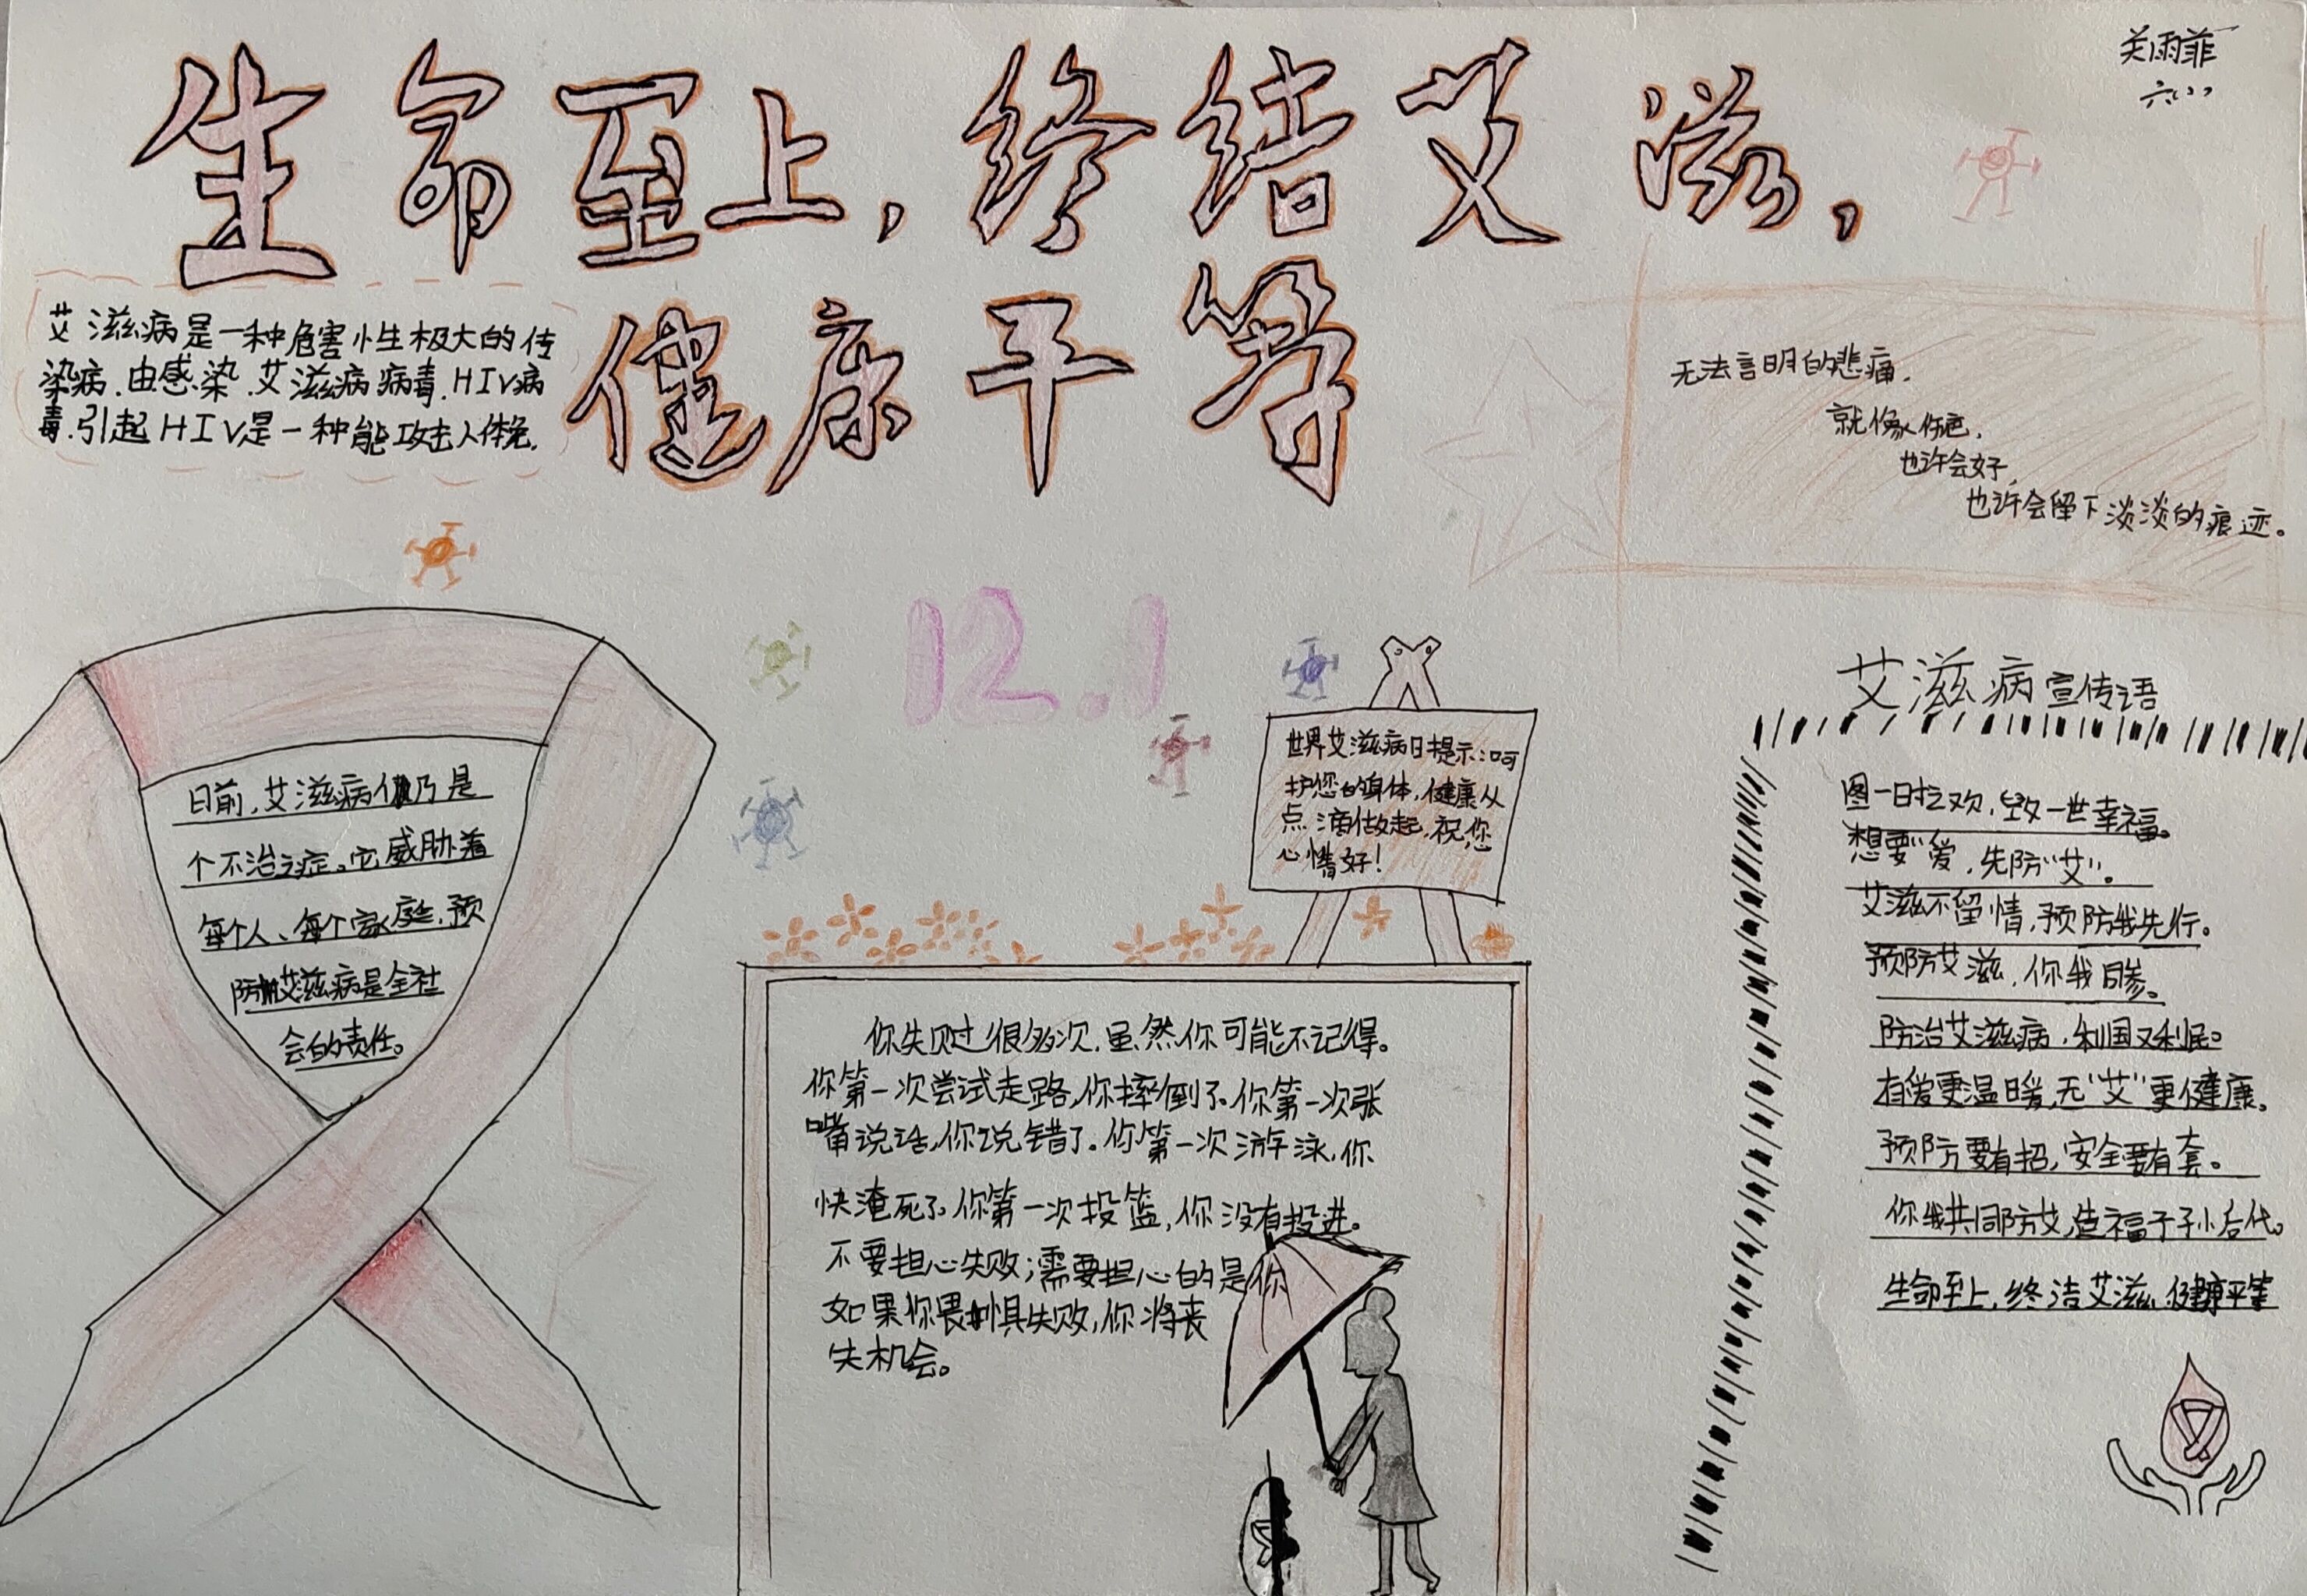 关雨菲
生命至上,终结艾滋,
健康平等
艾滋病是一种危害性极大的传
染病.由感染.艾滋病病毒.HIV病
毒.引起HIV是一种能攻击人体免.
无法言明的悲痛.
就像伤疤,
也许会好,
也许会留下淡淡的痕迹。
12.1
日前,艾滋病仍是
个不治之症。它威胁着
每个人、每个家庭.预
防艾滋病是全社
会的责任。
世界艾滋病日提示:呵
护您的身体,健康从
点滴做起,祝您
心情好!
你失败过很多次.虽然你可能不记得。
你第一次尝试走路,你摔倒了。你第一次张
嘴说话,你说错了。你第一次游泳,你
快淹死了。你第一次投篮,你没有投进。
不要担心失败;需要担心的是你
如果你畏惧失败,你将丧
失机会。
艾滋病宣传语
图一时之欢,毁一世幸福。
想要"爱,先防"艾"。
艾滋不留情,预防我先行。
预防艾滋,你我同参。
防治艾滋病,利国又利民。
有爱更温暖,无"艾"更健康。
预防要有招,安全要有套。
你我共同防艾,造福子孙后代。
生命至上,终洁艾滋,健康平等